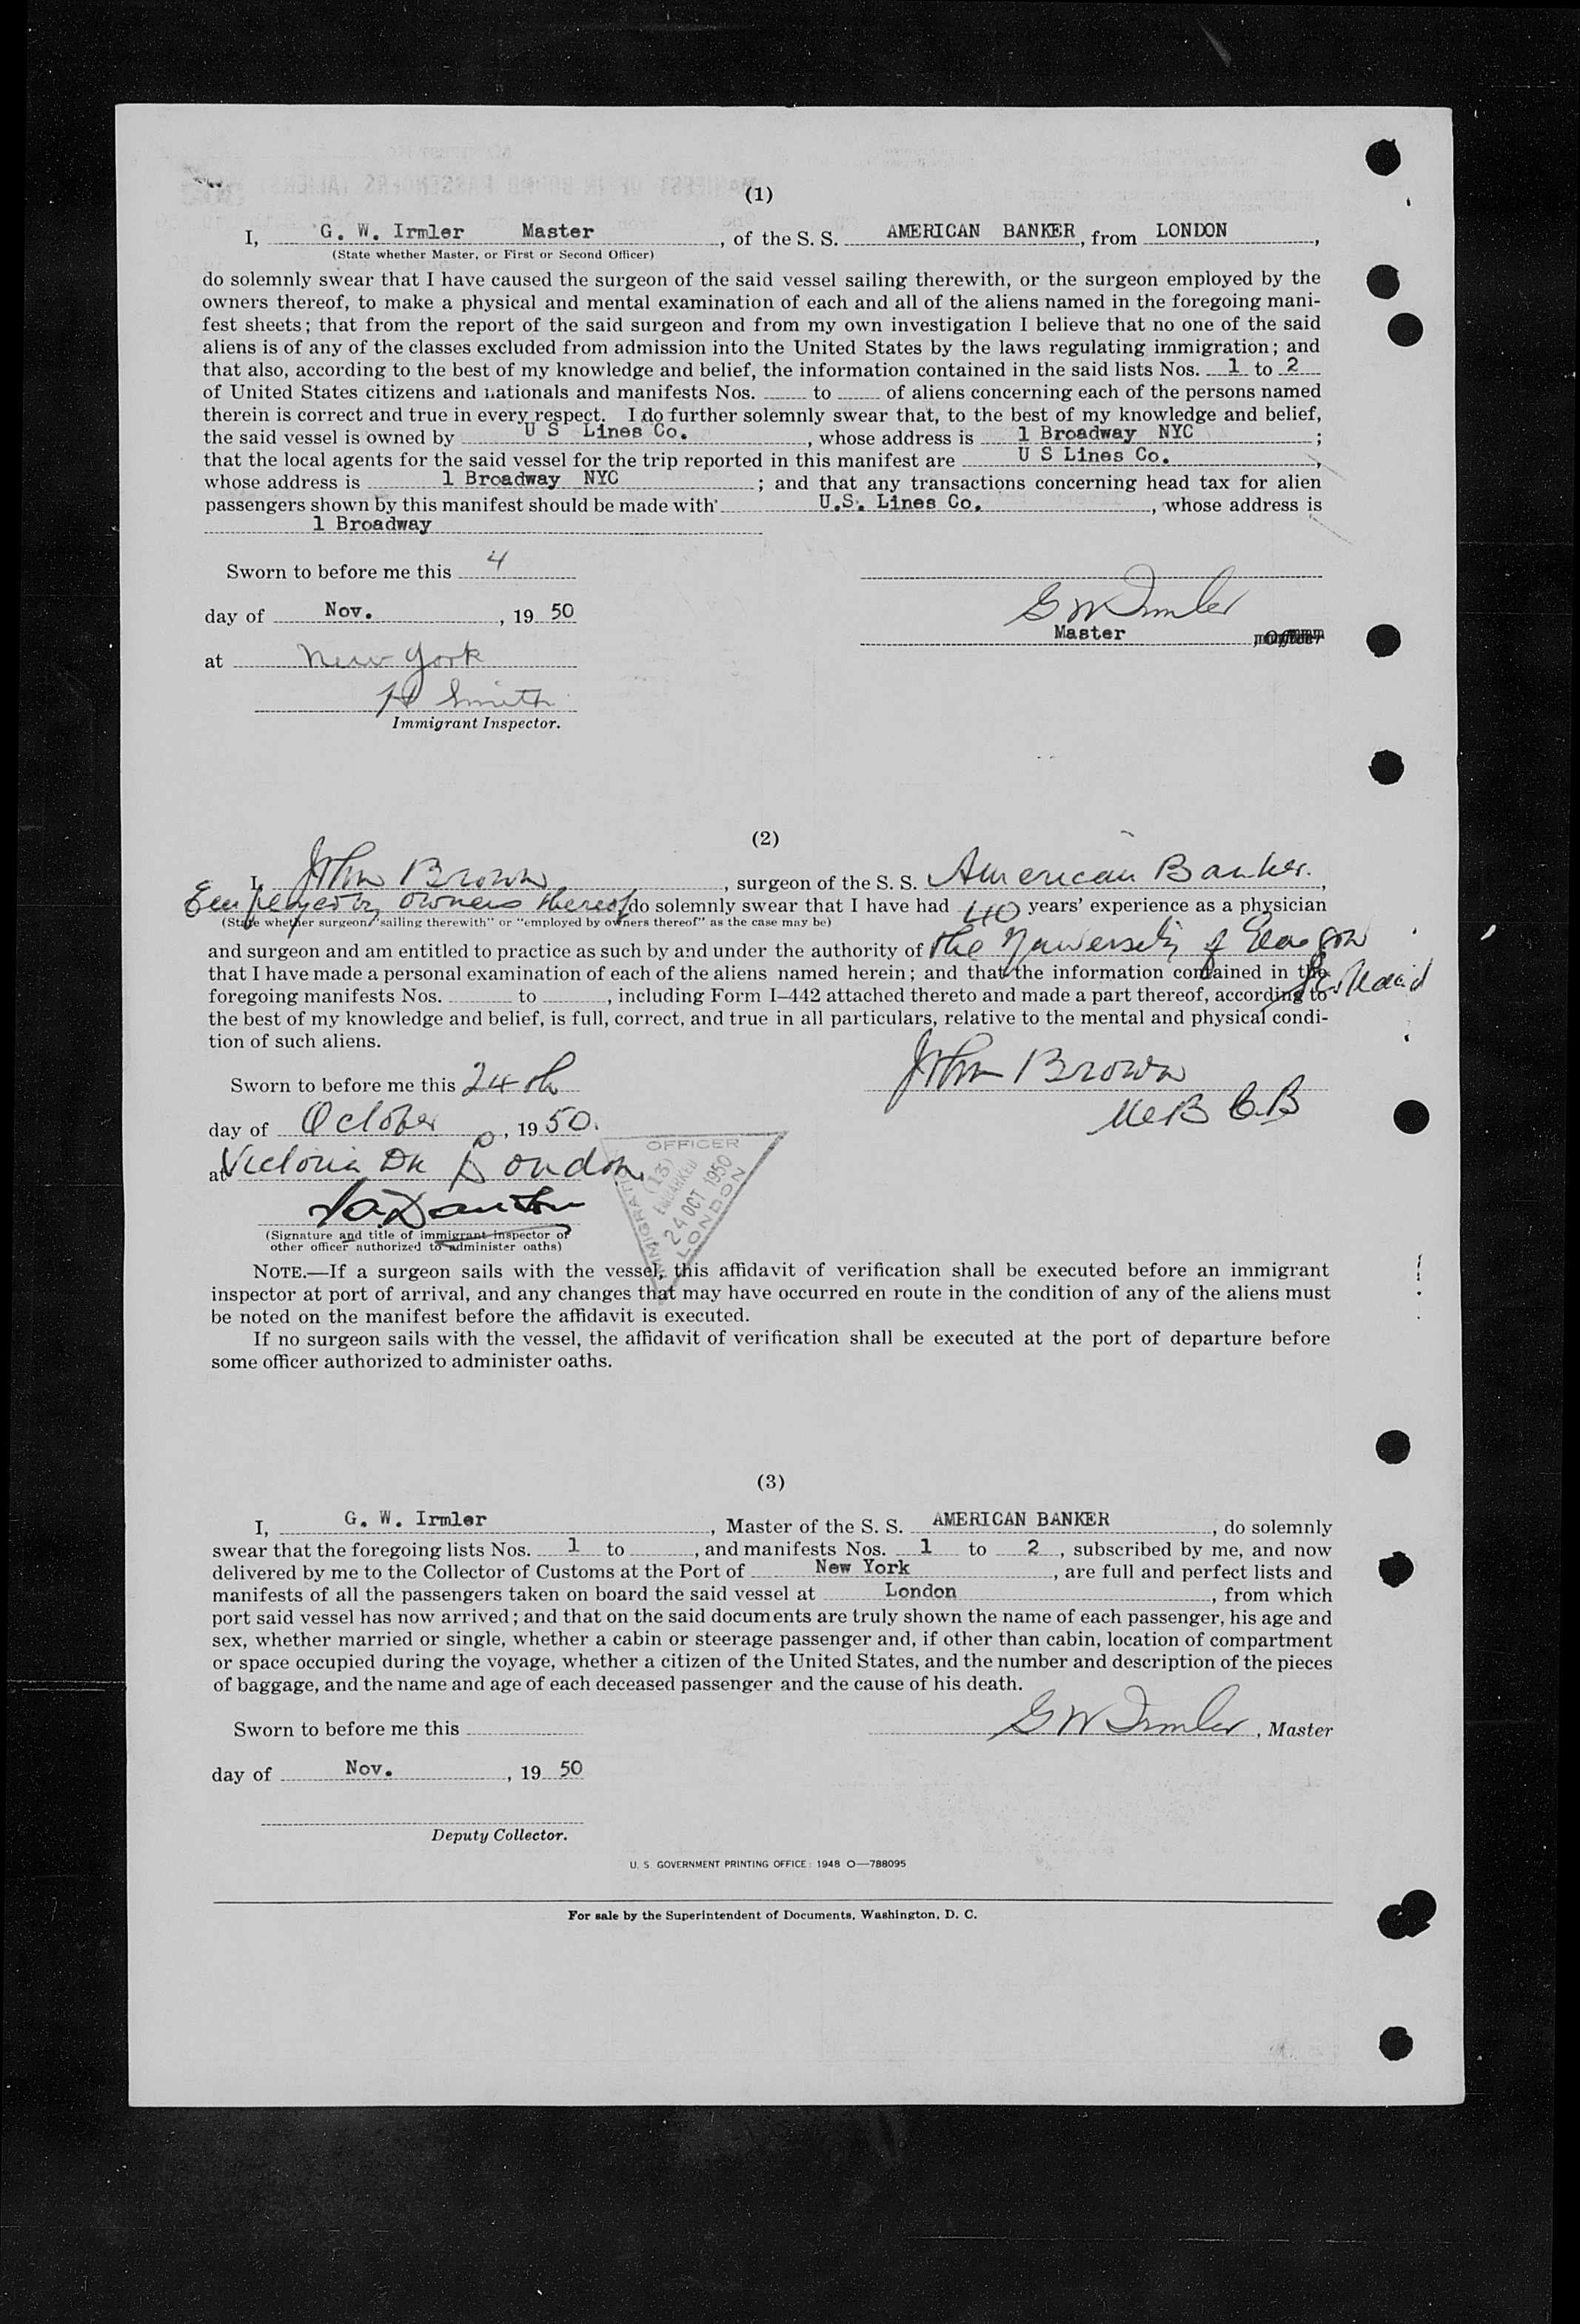 (1)
I, G. W. Irmler Master, of the S. S. AMERICAN BANKER, from LONDON,
(State whether Master, or First or Second Officer)
do solemnly swear that I have caused the surgeon of the said vessel sailing therewith, or the surgeon employed by the
owners thereof, to make a physical and mental examination of each and all of the aliens named in the foregoing mani-
fest sheets; that from the report of the said surgeon and from my own investigation I believe that no one of the said
aliens is of any of the classes excluded from admission into the United States by the laws regulating immigration; and
that also, according to the best of my knowledge and belief, the information contained in the said lists Nos. 1 to 2
of United States citizens and nationals and manifests Nos. to of aliens concerning each of the persons named
therein is correct and true in every respect. I do further solemnly swear that, to the best of my knowledge and belief,
the said vessel is owned by U S Lines Co., whose address is 1 Broadway NYC;
that the local agents for the said vessel for the trip reported in this manifest are U S Lines Co.,
whose address is 1 Broadway NYC; and that any transactions concerning head tax for alien
passengers shown by this manifest should be made with U.S. Lines Co., whose address is
1 Broadway
Sworn to before me this 4
day of Nov., 19 50
G W Irmler
Master, Officer
at New York
H Smith
Immigrant Inspector.
(2)
I, John Brown, surgeon of the S. S. American Banker.,
Employed by owners thereof do solemnly swear that I have had 40 years' experience as a physician
(State whether surgeon "sailing therewith" or "employed by owners thereof" as the case may be)
and surgeon and am entitled to practice as such by and under the authority of the University of Glasgow
Scotland
that I have made a personal examination of each of the aliens named herein; and that the information contained in the
foregoing manifests Nos. to , including Form I-442 attached thereto and made a part thereof, according to
the best of my knowledge and belief, is full, correct, and true in all particulars, relative to the mental and physical condi-
tion of such aliens.
Sworn to before me this 24th
John Brown
M B C.B
day of October, 19 50.
at Victoria Dk London
(Signature and title of immigrant inspector or
other officer authorized to administer oaths)
IMMIGRATION OFFICER
(13)
EMBARKED
24 OCT 1950
LONDON
NOTE.—If a surgeon sails with the vessel, this affidavit of verification shall be executed before an immigrant
inspector at port of arrival, and any changes that may have occurred en route in the condition of any of the aliens must
be noted on the manifest before the affidavit is executed.
If no surgeon sails with the vessel, the affidavit of verification shall be executed at the port of departure before
some officer authorized to administer oaths.
(3)
I, G. W. Irmler, Master of the S. S. AMERICAN BANKER, do solemnly
swear that the foregoing lists Nos. 1 to , and manifests Nos. 1 to 2, subscribed by me, and now
delivered by me to the Collector of Customs at the Port of New York, are full and perfect lists and
manifests of all the passengers taken on board the said vessel at London, from which
port said vessel has now arrived; and that on the said documents are truly shown the name of each passenger, his age and
sex, whether married or single, whether a cabin or steerage passenger and, if other than cabin, location of compartment
or space occupied during the voyage, whether a citizen of the United States, and the number and description of the pieces
of baggage, and the name and age of each deceased passenger and the cause of his death.
Sworn to before me this
G W Irmler, Master
day of Nov., 19 50
Deputy Collector.
U. S. GOVERNMENT PRINTING OFFICE: 1948 O—788095
For sale by the Superintendent of Documents, Washington, D. C.